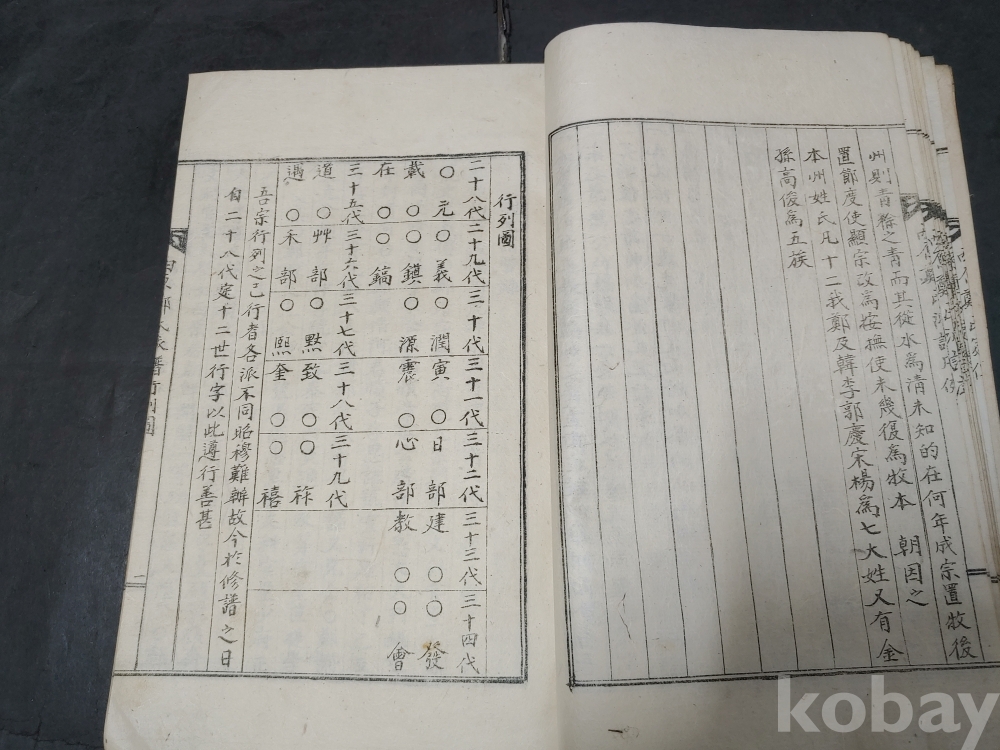 州則青徐之青而其從水為清未知的在何年成宗置牧後
置節度使顯宗改為按撫使未幾復為牧本 朝因之
本州姓氏凡十二我鄭及韓李郭慶宋楊為七大姓又有金
孫高俊為五族
行列圖
二十八代 二十九代 三十代 三十一代 三十二代 三十三代 三十四代
○元 ○義 潤○ 寅○ 日部 建○ ○發
戴○ ○鎮 源○ 震○ 心部 教○ ○會
在○ ○鎬
三十五代 三十六代 三十七代 三十八代 三十九代
道○ 艸部 ○㸃 致○ ○祿
遇○ 禾部 ○熙 奎○ ○禧
吾宗行列之已行者各派不同昭穆難辨故今於修譜之日
自二十八代定十二世行字以此遵行善甚
氏家譜 行列圖
一
kobay